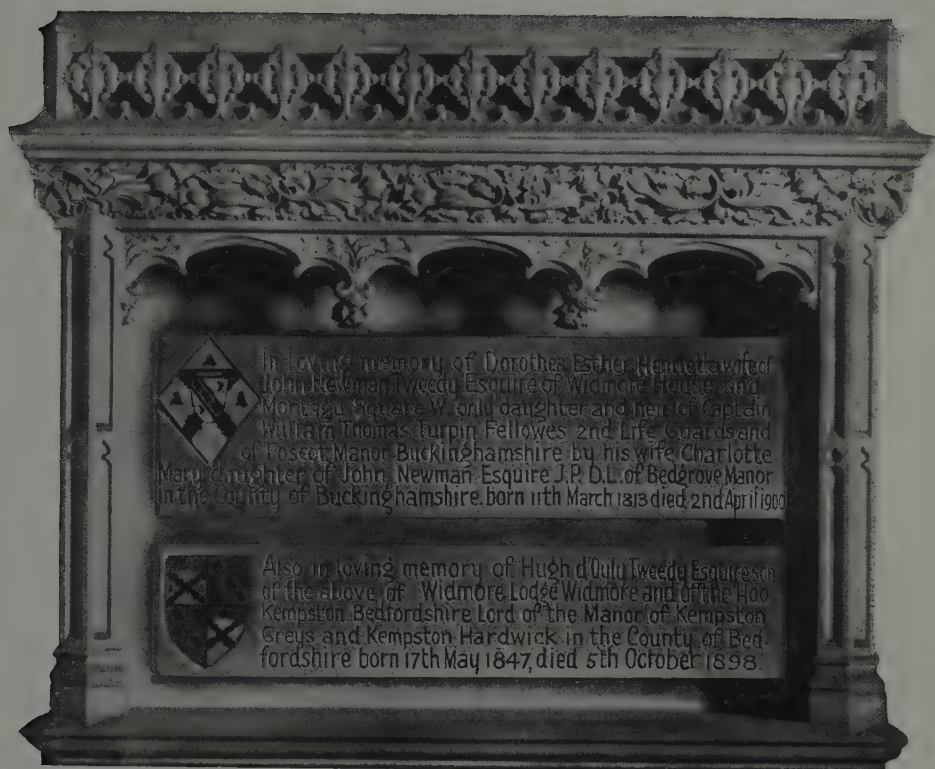 In loving memory of Dorothea Esther Henrietta wife of
John Newman Tweedy Esquire of Widmore House and
Montagu Square W. only daughter and heir of Captain
William Thomas Turpin Fellowes 2nd Life Guards and
of Foscot Manor Buckinghamshire by his wife Charlotte
Mary daughter of John Newman Esquire J.P. D.L. of Bedgrove Manor
in the County of Buckinghamshire. born 11th March 1813 died 2nd April 1900
Also in loving memory of Hugh d'Oulu Tweedy Esquire son
of the above of Widmore Lodge Widmore and of the Hoo
Kempston Bedfordshire Lord of the Manor of Kempston
Greys and Kempston Hardwick in the County of Bed-
fordshire born 17th May 1847, died 5th October 1898.